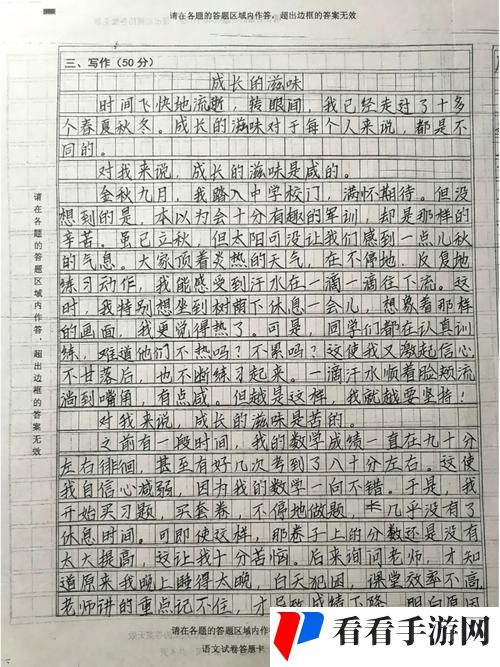 请在各题的答题区域内作答，超出边框的答案无效
三、写作（50分）
成长的滋味
时间飞快地流逝，转眼间，我已经走过了十多
个春夏秋冬。成长的滋味对于每个人来说，都是不
同的。
对我来说，成长的滋味是咸的。
金秋九月，我踏入中学校门，满怀期待。但没
想到的是，本以为会十分有趣的军训，却是那样的
辛苦。虽已立秋，但太阳可没让我们感到一点儿秋
的气息。大家顶着炎热的天气，在不停地、反复地
练习动作，我能感受到汗水在一滴一滴往下流。这
时，我特别想坐到树荫下休息一会儿，想象着那样
的画面，我更觉得热了。可是，同学们都在认真训
练，难道他们不热吗？不累吗？这使我又激起信心，
不甘落后，也不断练习起来。一滴汗水顺着脸颊流
淌到嘴角，有点咸。但越是这样，我就越要坚持！
对我来说，成长的滋味是苦的。
之前有一段时间，我的数学成绩一直在九十分
左右徘徊，甚至有好几次考到了八十分左右。这使
我自信心减弱，因为我的数学一向不错。于是，我
开始买习题，买套卷，不停地做题，几乎没有了
休息时间。可即使这样，那卷子上的分数还是没有
太大提高，这让我十分苦恼。后来询问老师，才知
道原来我晚上睡得太晚，白天犯困，课堂效率不高，
老师讲的重点记不住，才导致成绩下降。明白原因
请在各题的答题区域内作
语文试卷答题卡
请在各题的答题区域内作答，超出边框的答案无效
看看手游网